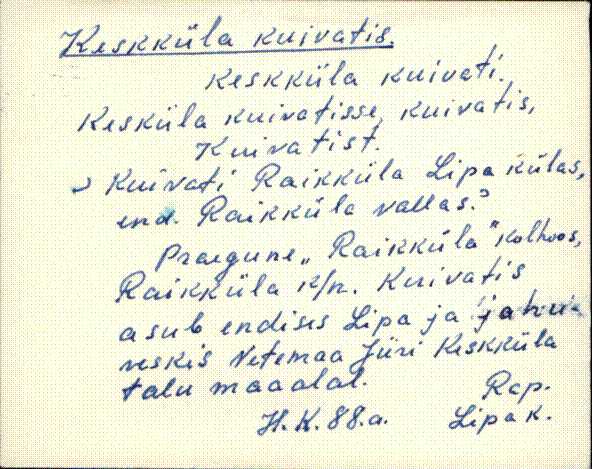 Keskküla kuivatis.
Keskküla kuivati.
Kesküla kuivatisse, kuivatis,
Kuivatist.
Kuivati Raikküla Lipa külas,
end. Raikküla vallas.
Praegune „Raikküla" kolhoos,
Raikküla k/n. Kuivatis
asub endises Lipa ja jahu-
veskis Netemaa Jüri Keskküla
talu maaalal. Rap.
H.K. 88.a. Lipa k.